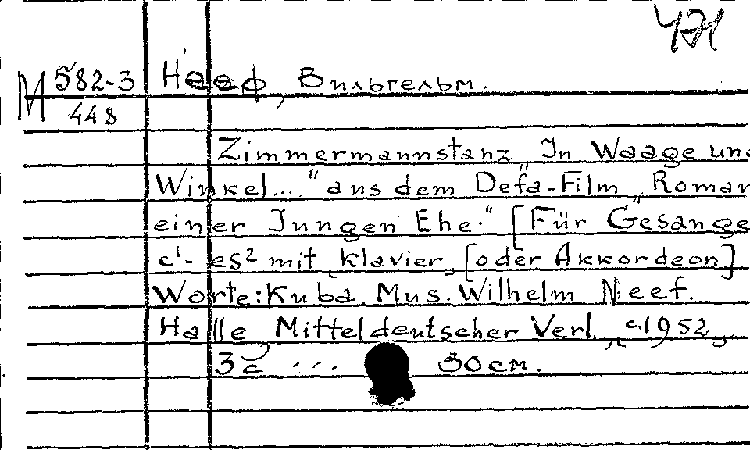 471
М 582-3
448
Нееф, Вильгельм.
Zimmermannstanz „In Waage und
Winkel...." aus dem Defa-Film „Roman
einer Jungen Ehe." [Für Gesange
c¹- es² mit Klavier [oder Akkordeon]
Worte: Kuba. Mus. Wilhelm Neef.
Halle Mitteldeutscher Verl., c.1952,
3 с ... 30 см.